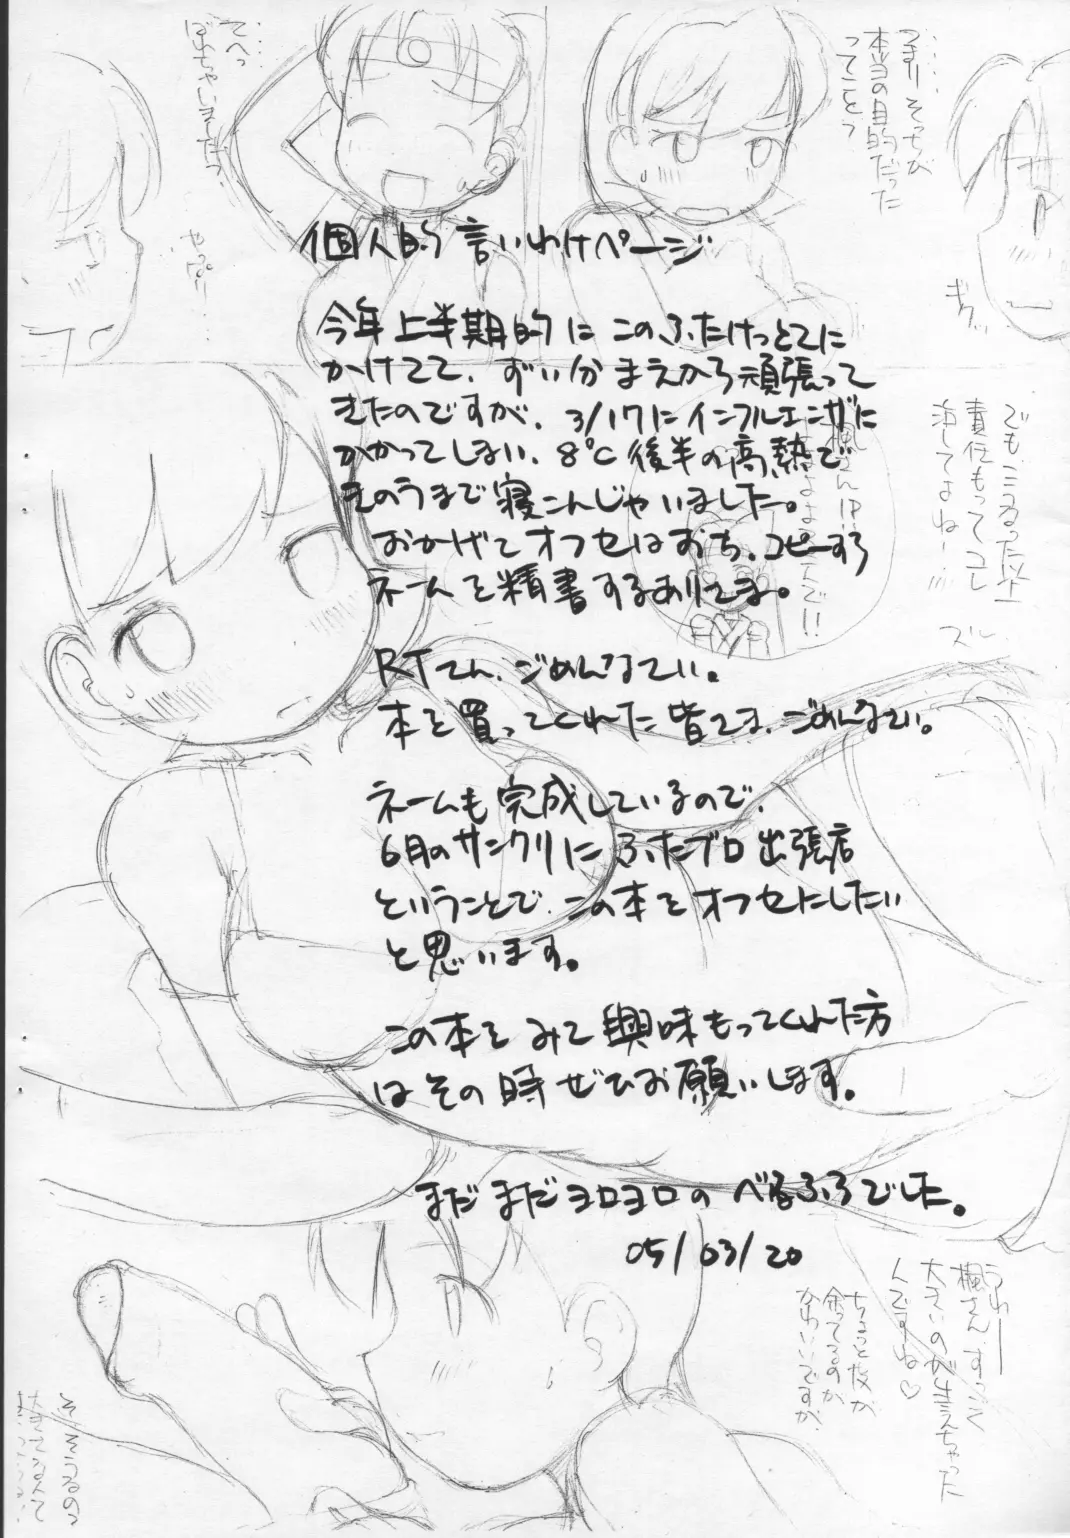 個人的言いわけページ
今年上半期的にこのふたけっとさに
かけてて、ずい分まえから頑張って
きたのですが、3/17にインフルエンザに
かかってしまい、8℃後半の高熱で
きのうまで寝こんじゃいました。
おかげさオフセはおち、コピーすら
ネームを精書するありさま。
RTさん、ごめんなさい。
本を買ってくれた皆さま、ごめんなさい。
ネームも完成しているので、
6月のサンクリにふたプロ出張店
ということで、この本をオフセにしたい
と思います。
この本をみて興味もってくれた方
はその時ぜひお願いします。
まだまだヨロヨロのべるふろでした。
05/03/20
つまりそっちが
本当の目的だった
ってことっ
ギクッ
責任もってコレ
ズル
うわー
楓さん、すっごく
大きいのが生えちゃった
んですね♡
ちょっと皮が
余ってるのが
かわいいですが